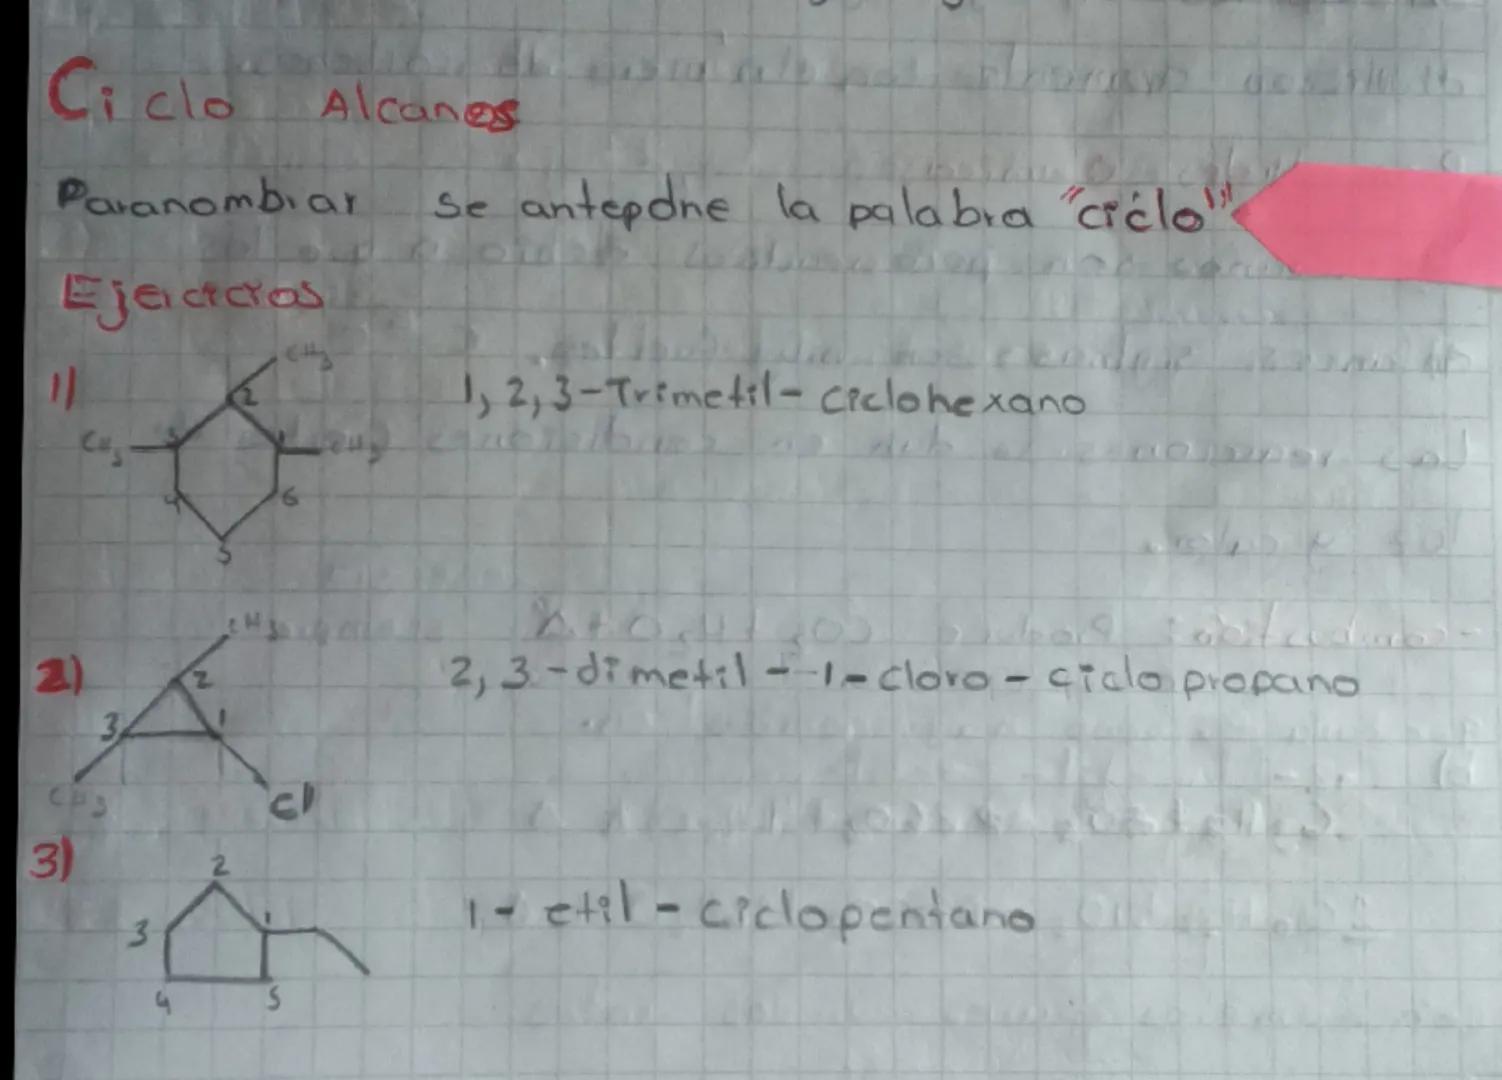 Ciclo Alcanos
Paranombrar se antepone la palabra "ciclo"
Ejercicios
1) 1, 2, 3-Trimetil- ciclohexano
CH3
2
CH3 3 1 CH3
4 6
5
2) 2, 3-dimetil--1-cloro-ciclo propano
CH3
2
3 1
CH3 Cl
3) 1- etil-ciclopentano
2
3 1
4 5